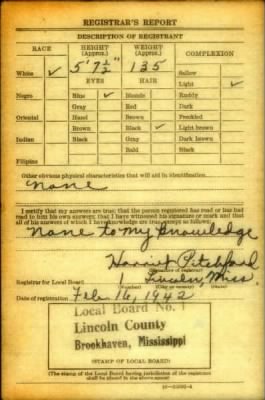 REGISTRAR'S REPORT
DESCRIPTION OF REGISTRANT
RACE HEIGHT (Approx.) WEIGHT (Approx.) COMPLEXION
5' 7½" 135 Sallow
White ✓ EYES HAIR Light ✓
Negro Blue ✓ Blonde Ruddy
Gray Red Dark
Oriental Hazel Brown Freckled
Brown Black ✓ Light brown
Indian Black Gray Dark brown
Bald Black
Filipino
Other obvious physical characteristics that will aid in identification
None
I certify that my answers are true; that the person registered has read or has had
read to him his own answers; that I have witnessed his signature or mark and that
all of his answers of which I have knowledge are true, except as follows:
None to my knowledge
Harriet Pitchford
(Signature of registrar)
Registrar for Local Board 1 Lincoln, Miss.
(Number) (City or county) (State)
Date of registration Feb. 16, 1942
Local Board No. 1
Lincoln County
Brookhaven, Mississippi
(STAMP OF LOCAL BOARD)
(The stamp of the Local Board having jurisdiction of the registrant
shall be placed in the above space.)